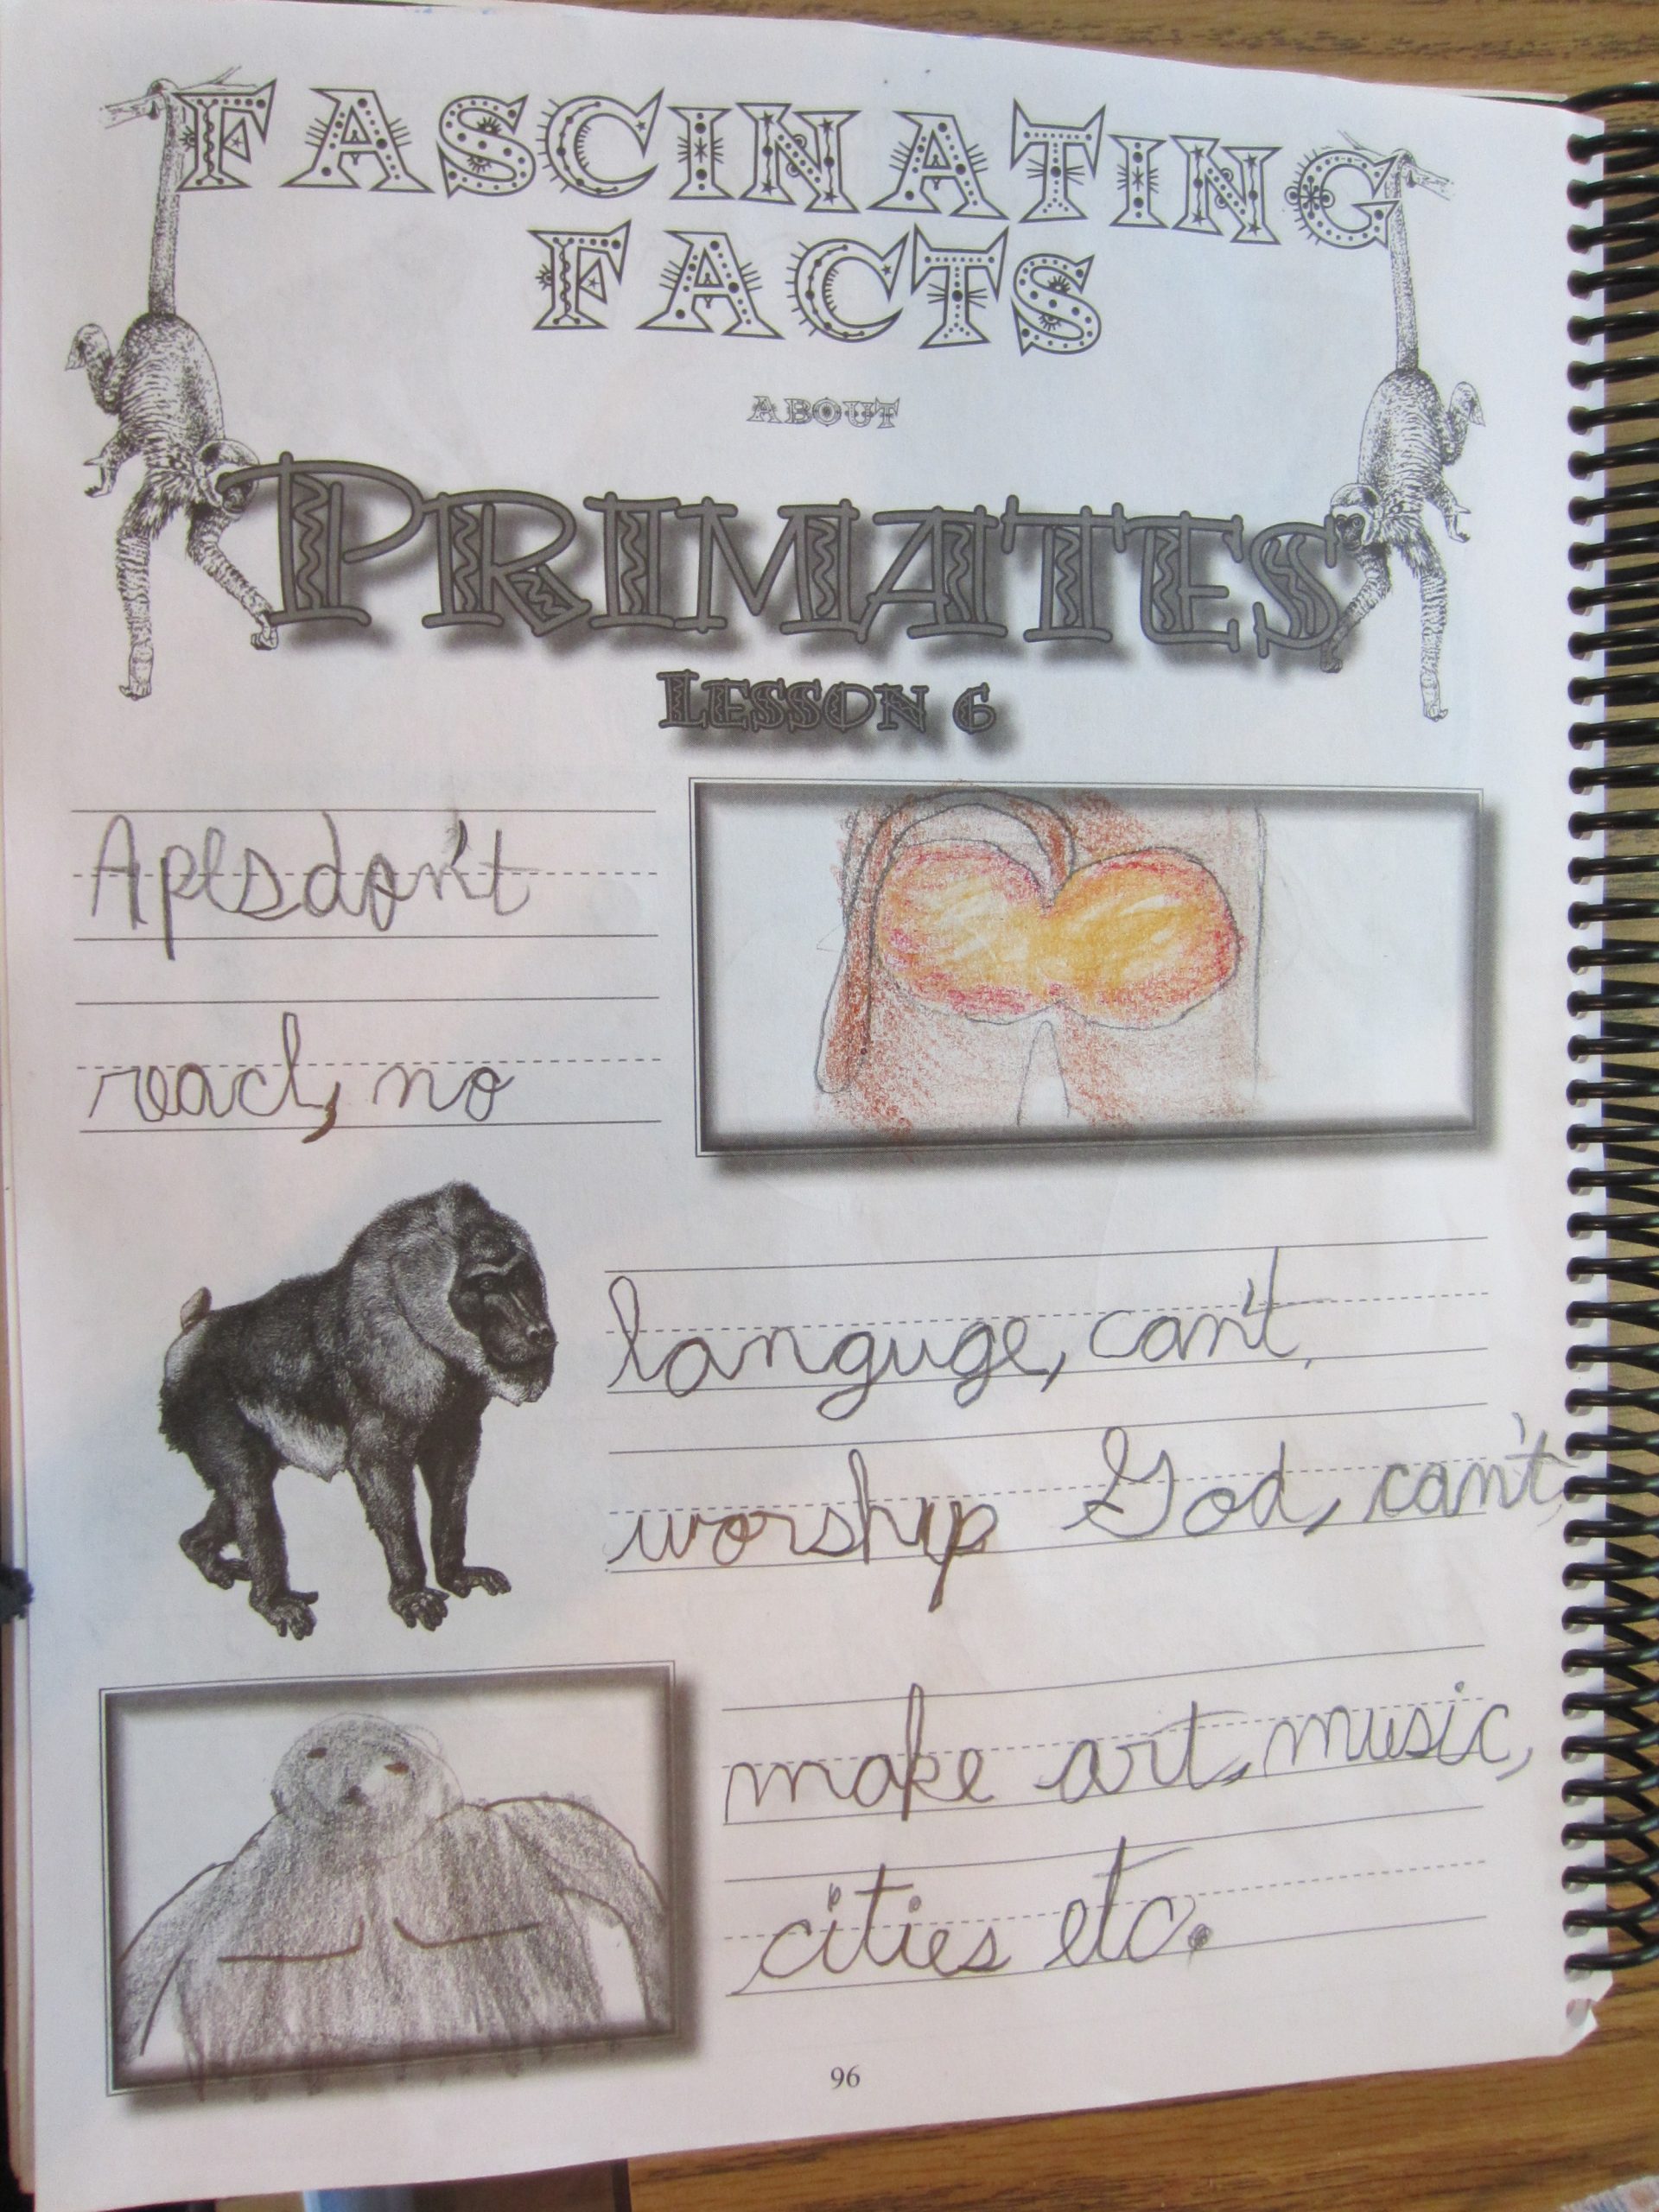 FASCINATING
FACTS
ABOUT
PRIMATES
LESSON 6
Apes don't
read, no
languge, can't,
worship God, can't,
make art, music,
cities etc.
96